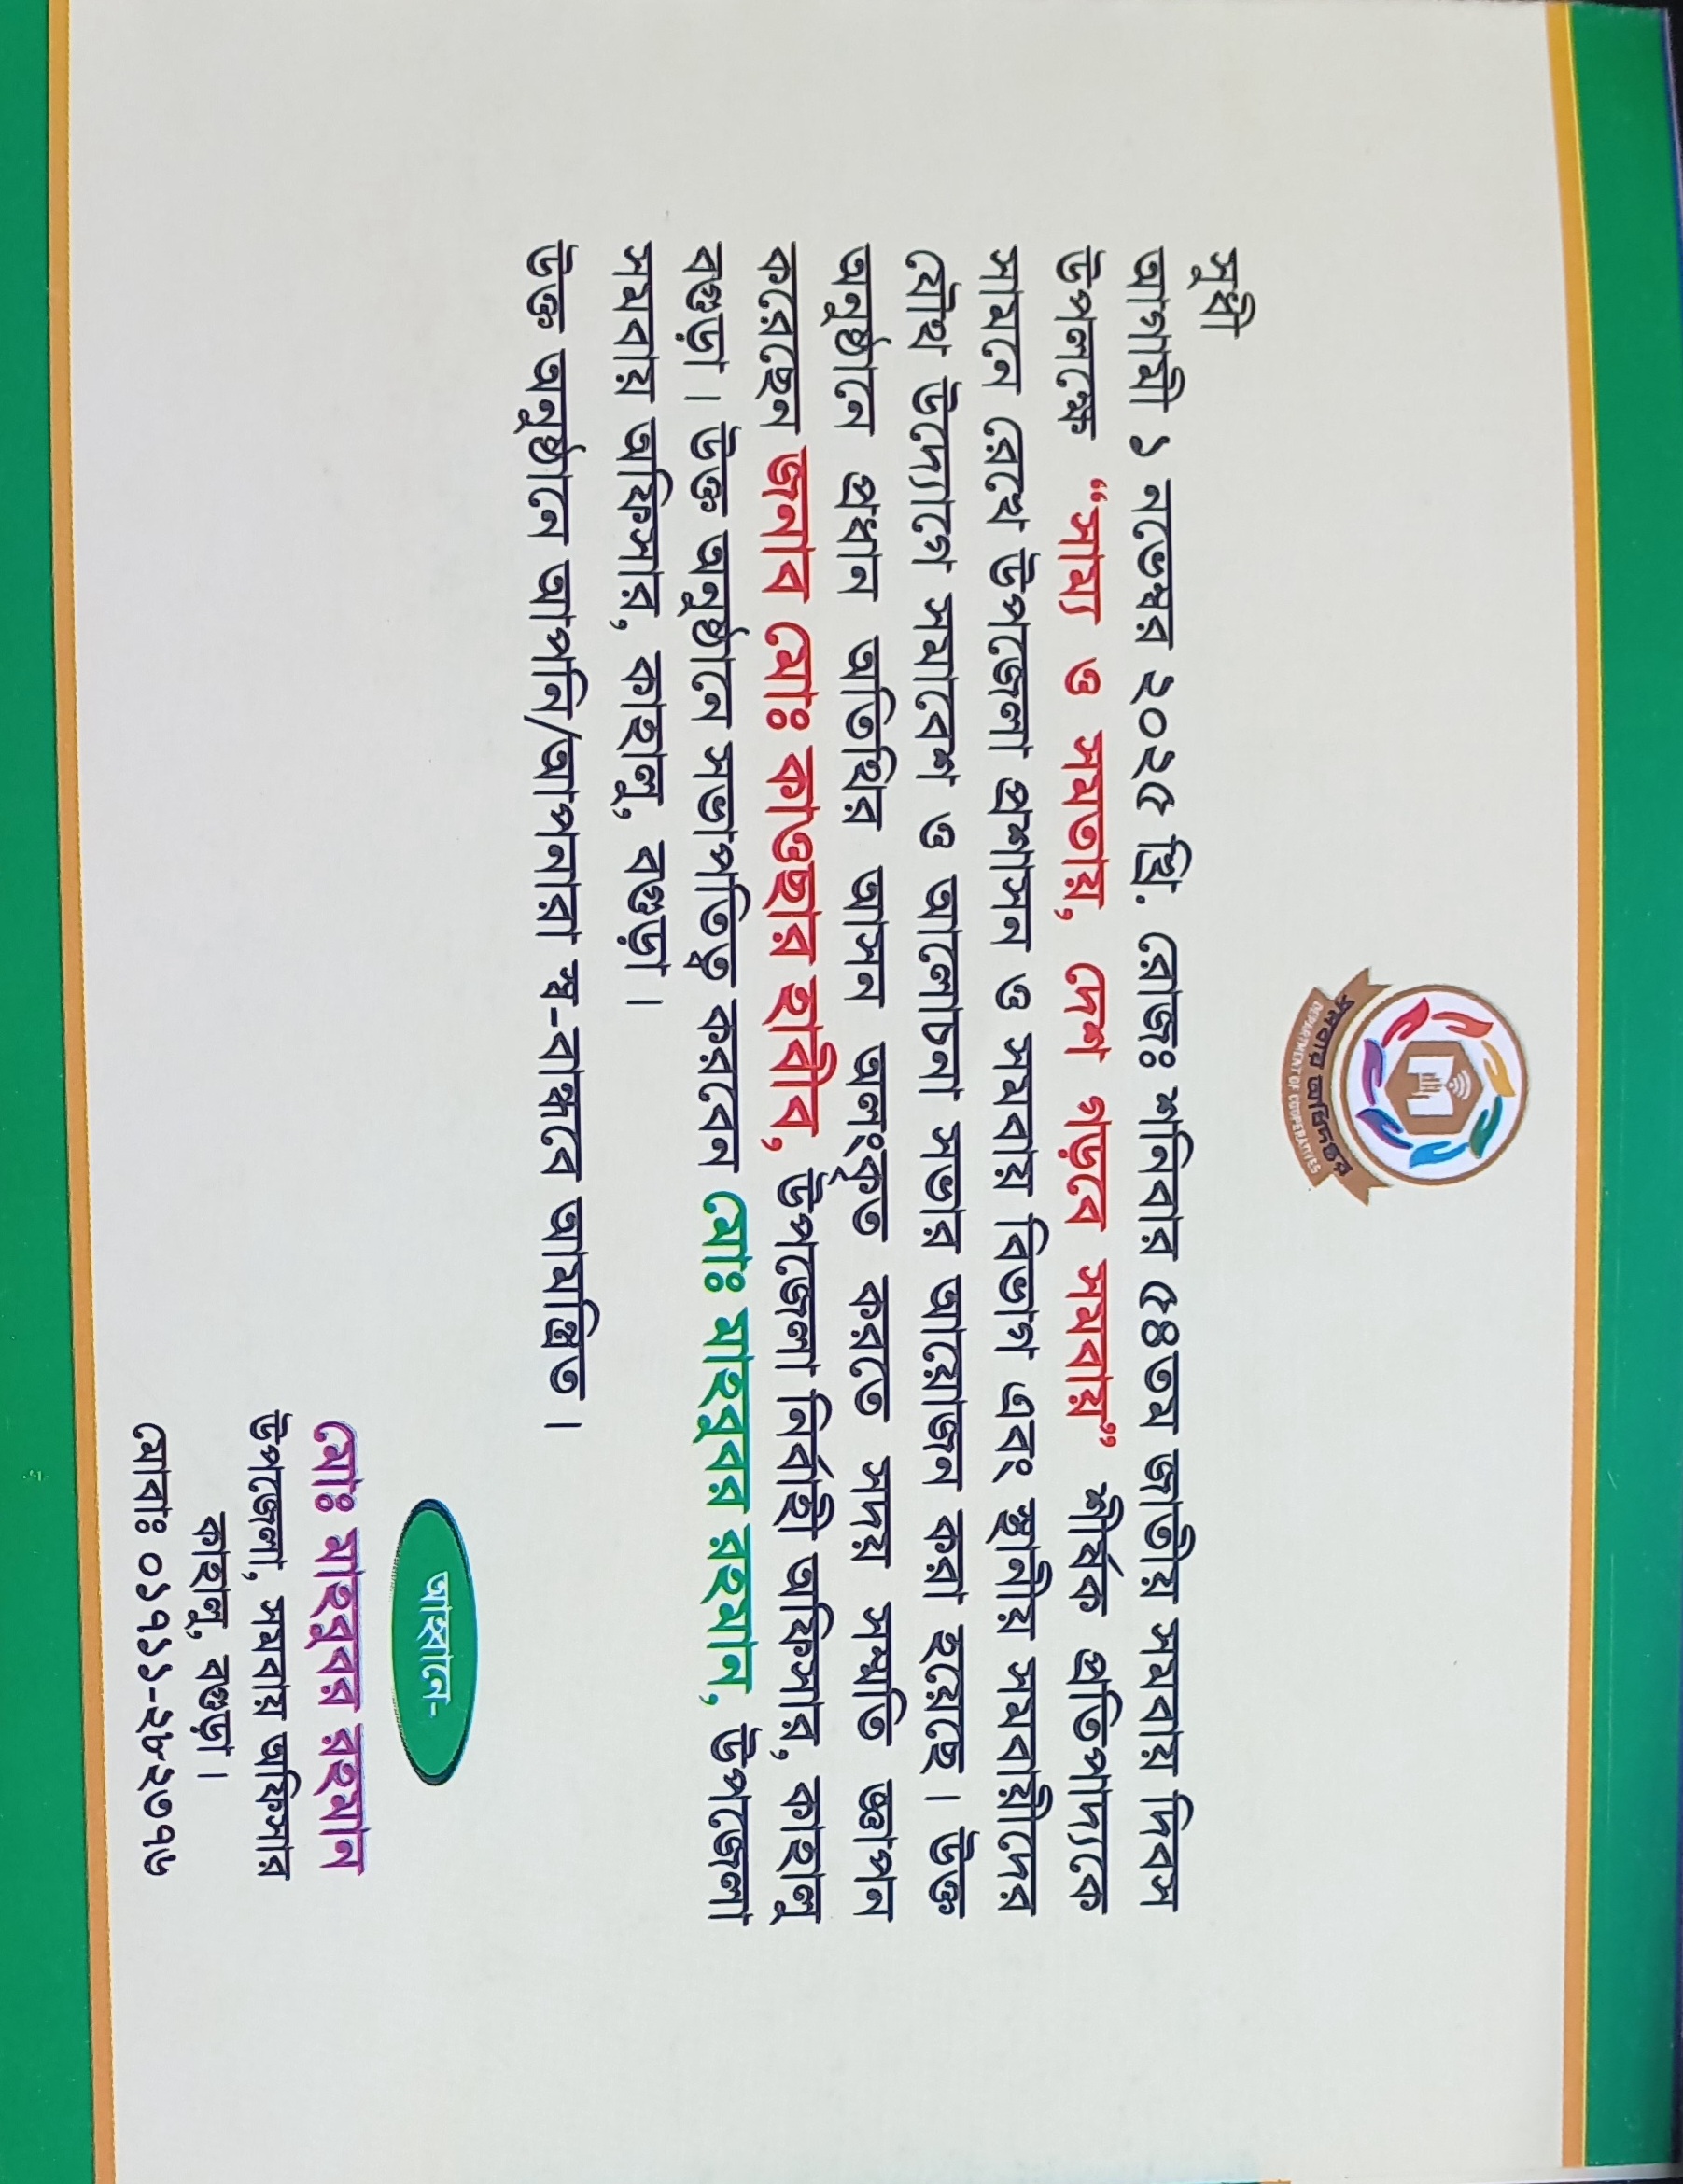 সমবায় অধিদপ্তর
DEPARTMENT OF COOPERATIVES
সুধী
আগামী ১ নভেম্বর ২০২৫ খ্রি. রোজঃ শনিবার ৫৪তম জাতীয় সমবায় দিবস
উপলক্ষে “সাম্য ও সমতায়, দেশ গড়বে সমবায়” শীর্ষক প্রতিপাদ্যকে
সামনে রেখে উপজেলা প্রশাসন ও সমবায় বিভাগ এবং স্থানীয় সমবায়ীদের
যৌথ উদ্যোগে সমাবেশ ও আলোচনা সভার আয়োজন করা হয়েছে। উক্ত
অনুষ্ঠানে প্রধান অতিথির আসন অলংকৃত করতে সদয় সম্মতি জ্ঞাপন
করেছেন জনাব মোঃ কাওছার হাবীব, উপজেলা নির্বাহী অফিসার, কাহালু
বগুড়া। উক্ত অনুষ্ঠানে সভাপতিত্ব করবেন মোঃ মাহবুবর রহমান, উপজেলা
সমবায় অফিসার, কাহালু, বগুড়া।
উক্ত অনুষ্ঠানে আপনি/আপনারা স্ব-বান্ধবে আমন্ত্রিত।
আহ্বানে-
মোঃ মাহবুবর রহমান
উপজেলা, সমবায় অফিসার
কাহালু, বগুড়া।
মোবাঃ ০১৭১১-২৮২৩৭৬